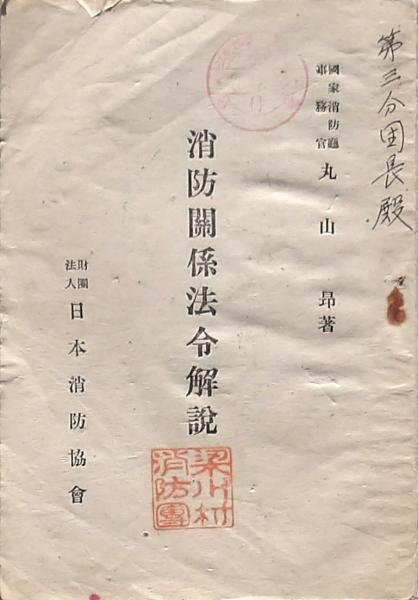 第三分団長殿
國家消防廳
事務官
丸山昂著
消防關係法令解説
財團
法人
日本消防協會
梁川村
消防團